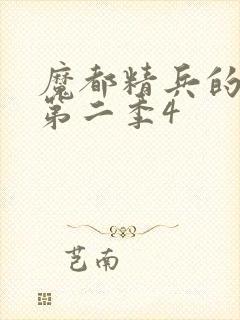 魔都精兵的
第二季4
芑南